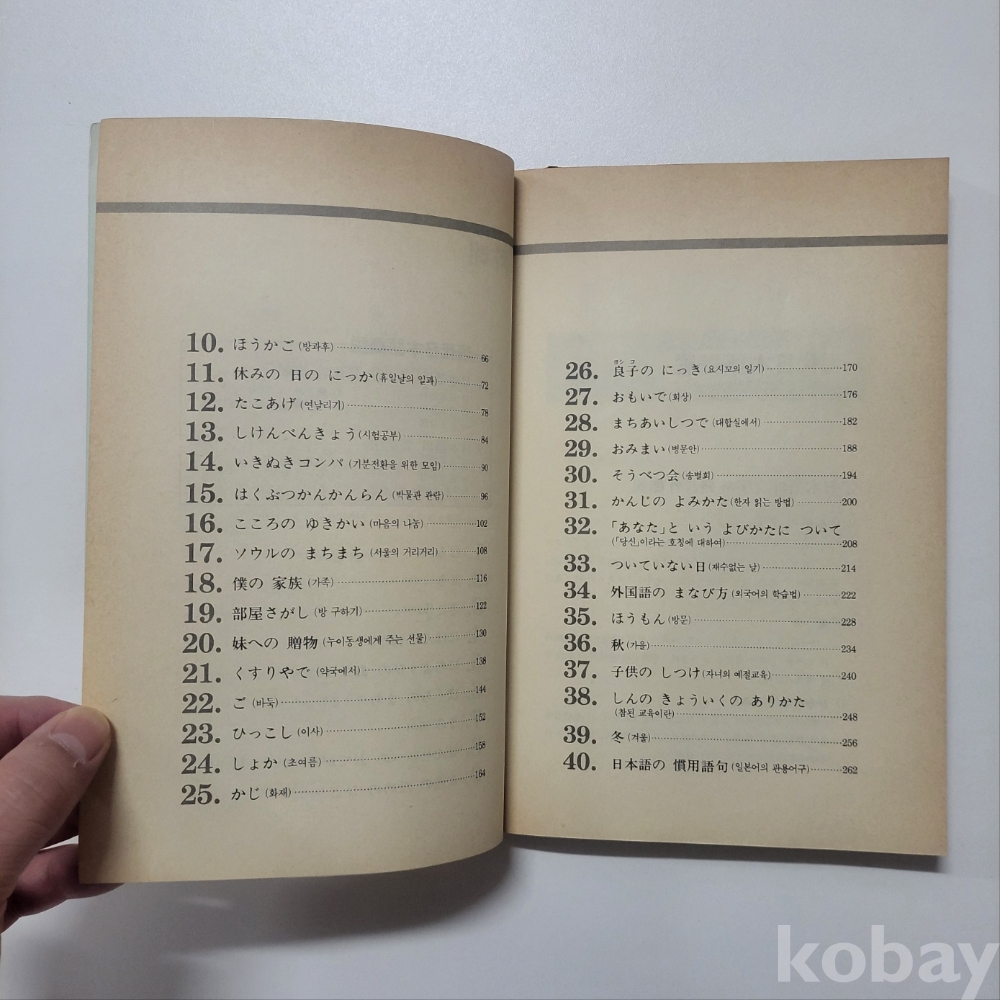 10. ほうかご (방과후) 66
11. 休みの 日の にっか (휴일날의 일과) 72
12. たこあげ (연날리기) 78
13. しけんべんきょう (시험공부) 84
14. いきぬきコンパ (기분전환을 위한 모임) 90
15. はくぶつかんかんらん (박물관 관람) 96
16. こころの ゆきかい (마음의 나눔) 102
17. ソウルの まちまち (서울의 거리거리) 108
18. 僕の 家族 (가족) 116
19. 部屋さがし (방 구하기) 122
20. 妹への 贈物 (누이동생에게 주는 선물) 130
21. くすりやで (약국에서) 138
22. ご (바둑) 144
23. ひっこし (이사) 152
24. しょか (초여름) 158
25. かじ (화재) 164
ヨシ コ
26. 良子の にっき (요시꼬의 일기) 170
27. おもいで (회상) 176
28. まちあいしつで (대합실에서) 182
29. おみまい (병문안) 188
30. そうべつ会 (송별회) 194
31. かんじの よみかた (한자 읽는 방법) 200
32. 「あなた」と いう よびかたに ついて
(「당신」이라는 호칭에 대하여) 208
33. ついていない日 (재수없는 날) 214
34. 外国語の まなび方 (외국어의 학습법) 222
35. ほうもん (방문) 228
36. 秋 (가을) 234
37. 子供の しつけ (자녀의 예절교육) 240
38. しんの きょういくの ありかた
(참된 교육이란) 248
39. 冬 (겨울) 256
40. 日本語の 慣用語句 (일본어의 관용어구) 262
kobay